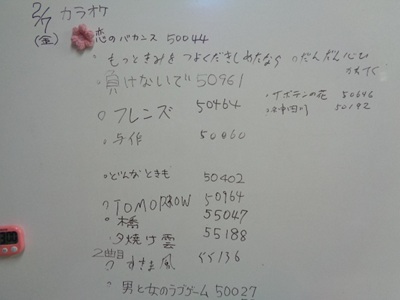 2/7 カラオケ
(金) 恋のバカンス 50044
・もっときみをつよくだきしめたなら ○だんだん心ひかれてく
・負けないで 50961
○フレンズ 50464
・サボテンの花 50646
50192
○与作 50060
○どんなときも 50402
TOMORROW 50964
○橋 55047
夕焼け雲 55188
2曲目
すきま風 55136
○男と女のラブゲーム 50027